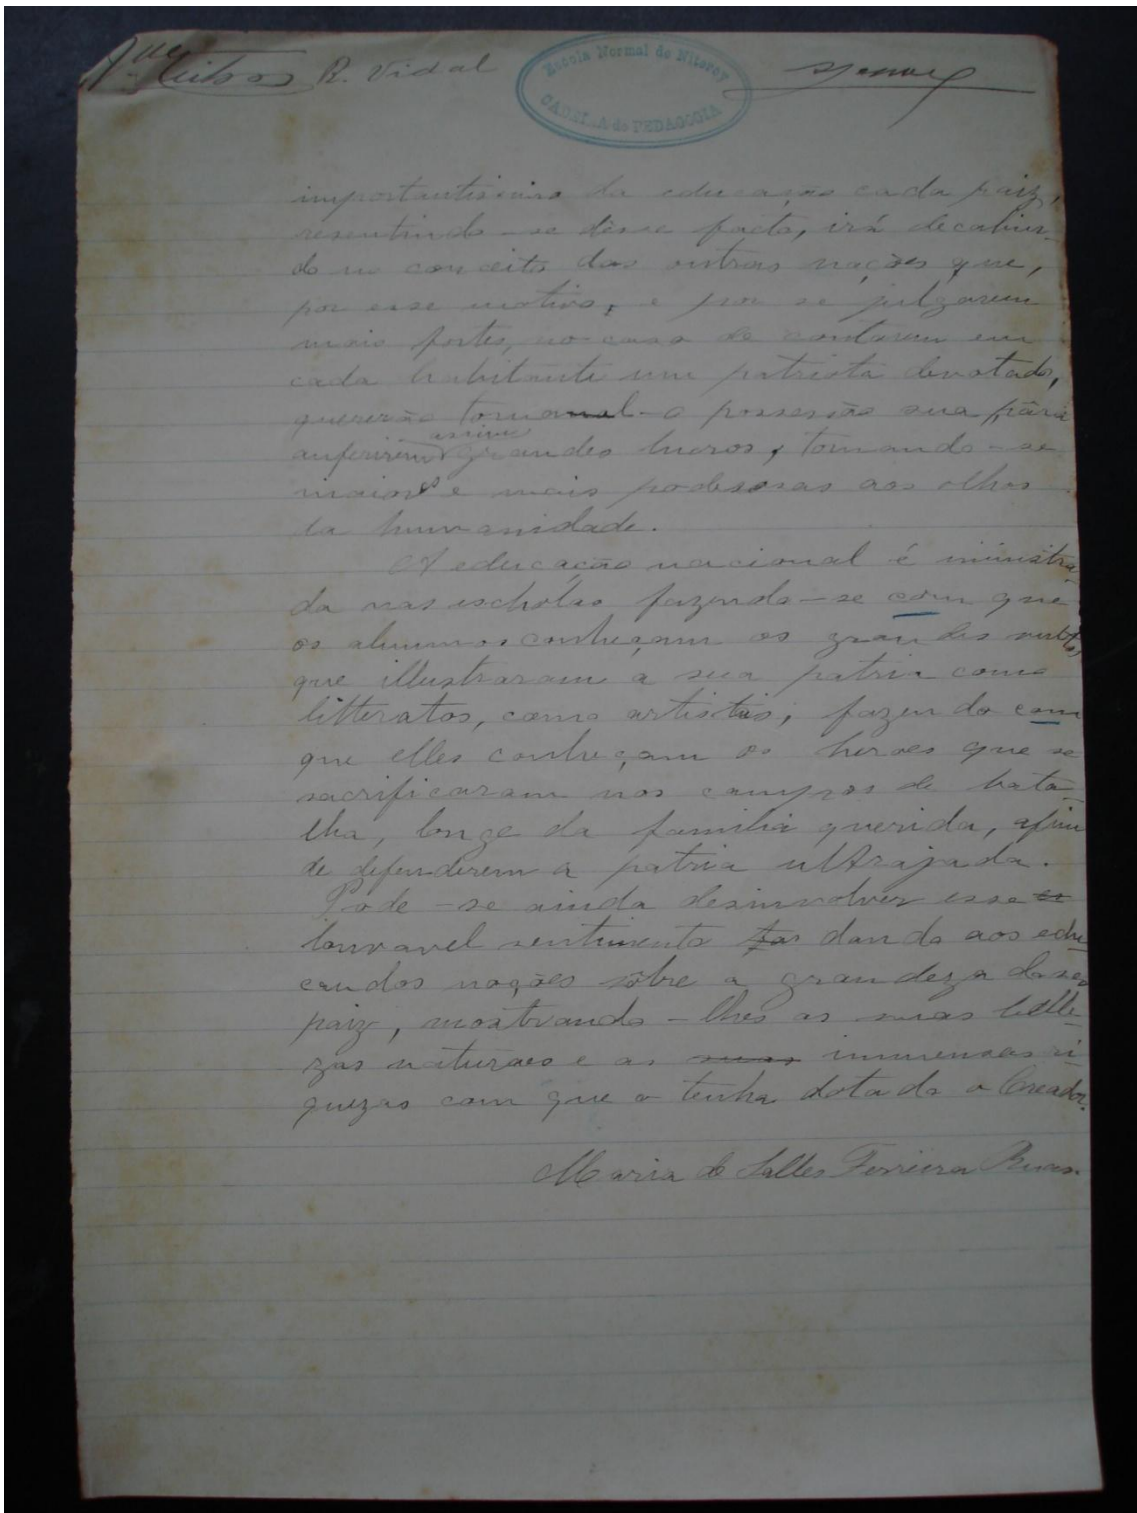 R. Vidal
Escola Normal de Niteroy
CADEIRA de PEDAGOGIA
importantissimo da educação cada paiz,
resentindo-se desse facto, irá decahin-
do no conceito das outras nações que,
por esse motivo, e por se julgarem
mais fortes, no caso de contarem em
cada habitante um patriota devotado,
quererão tornal-o possessão sua, para
auferirem assim grandes lucros, tornando-se
maiores e mais poderosas aos olhos
da humanidade.
A educação nacional é ministra-
da nas escholas fazendo-se com que
os alumnos conheçam os grandes vultos,
que illustraram a sua patria como
litteratos, como artistas; fazendo com
que elles conheçam os heroes que se
sacrificaram nos campos de bata-
lha, longe da familia querida, afim
de defenderem a patria ultrajada.
Pode-se ainda desinvolver esse
louvavel sentimento dando aos edu-
candos noções sôbre a grandeza desse
paiz, mostrando-lhes as suas belle-
zas naturaes e as suas immensas ri-
quezas com que o tenha dotado o Creador.
Maria de Salles Ferreira